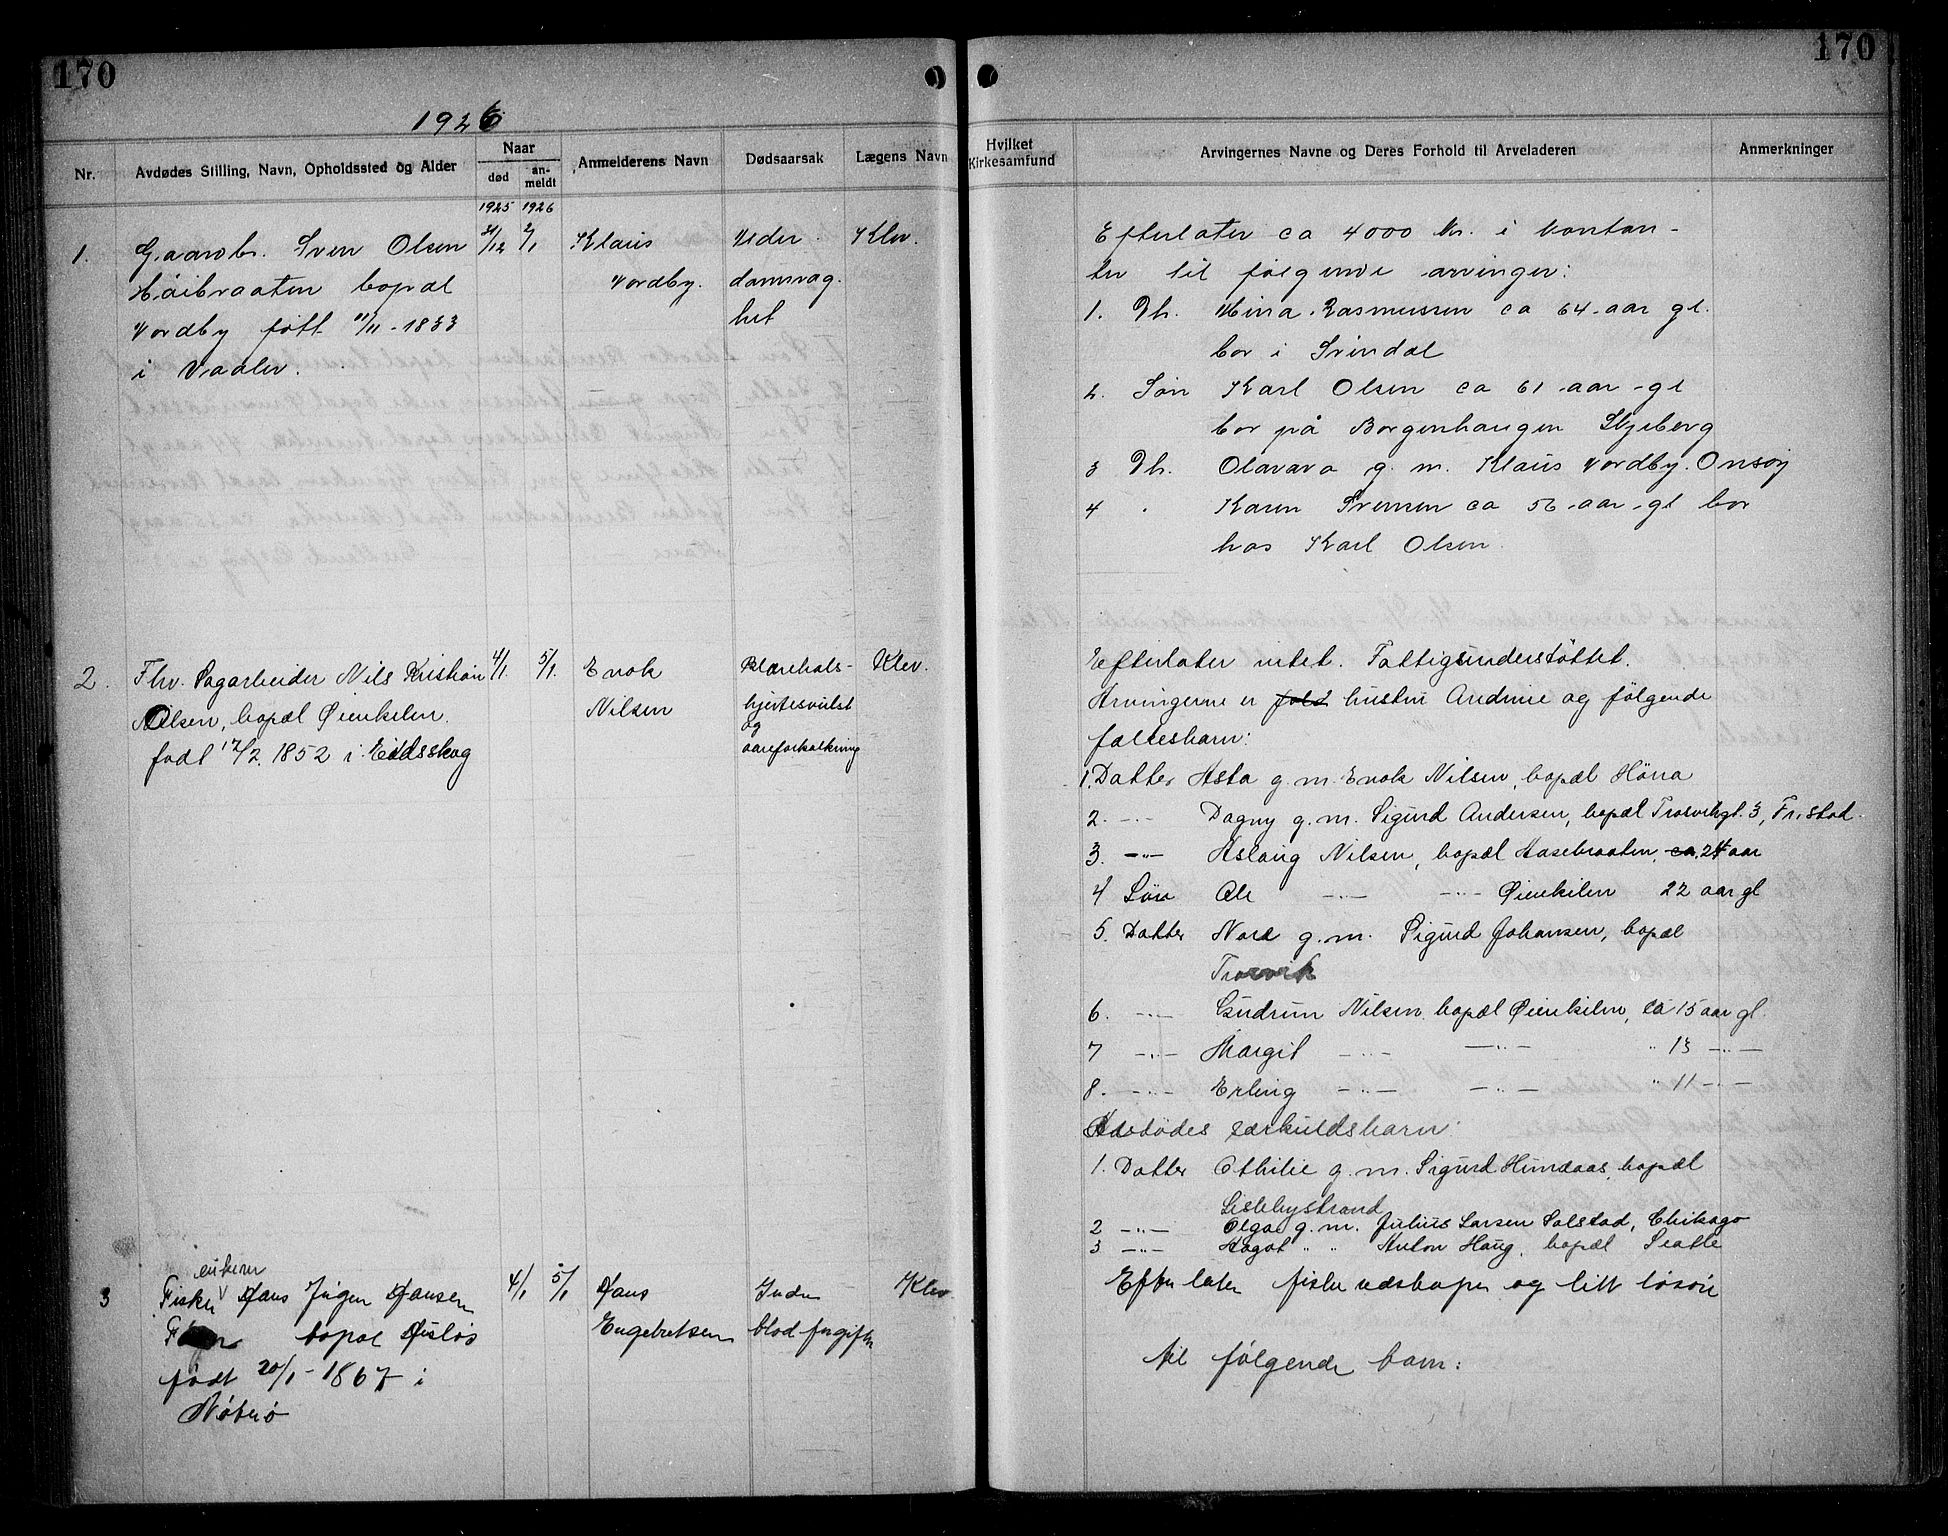 170
170
1926
Nr.
Avdødes Stilling, Navn, Opholdssted og Alder
Naar
død
an-
meldt
Anmelderens Navn
Dødsaarsak
Lægens Navn
Hvilket
Kirkesamfund
Arvingernes Navne og Deres Forhold til Arveladeren
Anmerkninger
1925 1926
1. Gaardbr. Sven Olsen 31/12 2/1 Klaus Alder- Klev.
Høibraaten bopæl Nordby. domsvag-
Nordby født 11/11-1833 het
i Vaaler.
Efterlater ca 4000 kr. i kontan-
ter til følgende arvinger:
1. Dt. Mina Rasmussen ca 64 aar gl.
bor i Svindal
2. Søn Karl Olsen ca 61 aar gl
bor på Borgenhaugen Skjeberg
3 Dt. Olavava g. m. Klaus Nordby. Onsøy
4 " Karen Svensen ca 56 aar gl bor
hos Karl Olsen.
2. Fhv. Sagarbeider Nils Kristian 4/1. 5/1. Enok Klev.
Nilsen, bopæl Øienkilen. Nilsen hjertesvulst
og
født 17/2. 1852 i Eidsskog aareforkalkning
Efterlater intet. Fattigunderstøttet.
Arvingerne er hustru Andrine og følgende
fællesbarn:
1. Datter Asta g. m. Enok Nilsen, bopæl Höna
2. -"- Dagny g. m. Sigurd Andersen, bopæl Trosvikgt. 3, Fr.stad.
3. -"- Aslaug Nilsen, bopæl Aasebraaten, ca. 24 aar
4 Søn Ole -"- -"- Øienkilen 22 aar gl
5. Datter Nora g. m. Sigurd Johansen, bopæl
Trosvik
6. -"- Gudrun Nilsen, bopæl Øienkilen, ca 15 aar gl.
7 -"- Margit -"- -"- " 13 -"-
8. -"- Erling -"- -"- " 11 -"-
Avdødes særkuldsbarn:
1. Datter Othilie g. m. Sigurd Hundaas, bopæl
Lislebystrand
2 -"- Olga g. m. Julius Larsen Solstad, Chikago
3 -"- Hagot " " Anton Haug, bopæl Seatle
enkemn
3 Fisker Hans Jrgen Hansen 4/1 5/1 Hans Indre Klev
bopæl Øisløs Engebretsen blodforgiftn
født 20/1-1867 i
Nøterø
Efterlater fiskeredskaper og litt løsøre
til følgende barn: